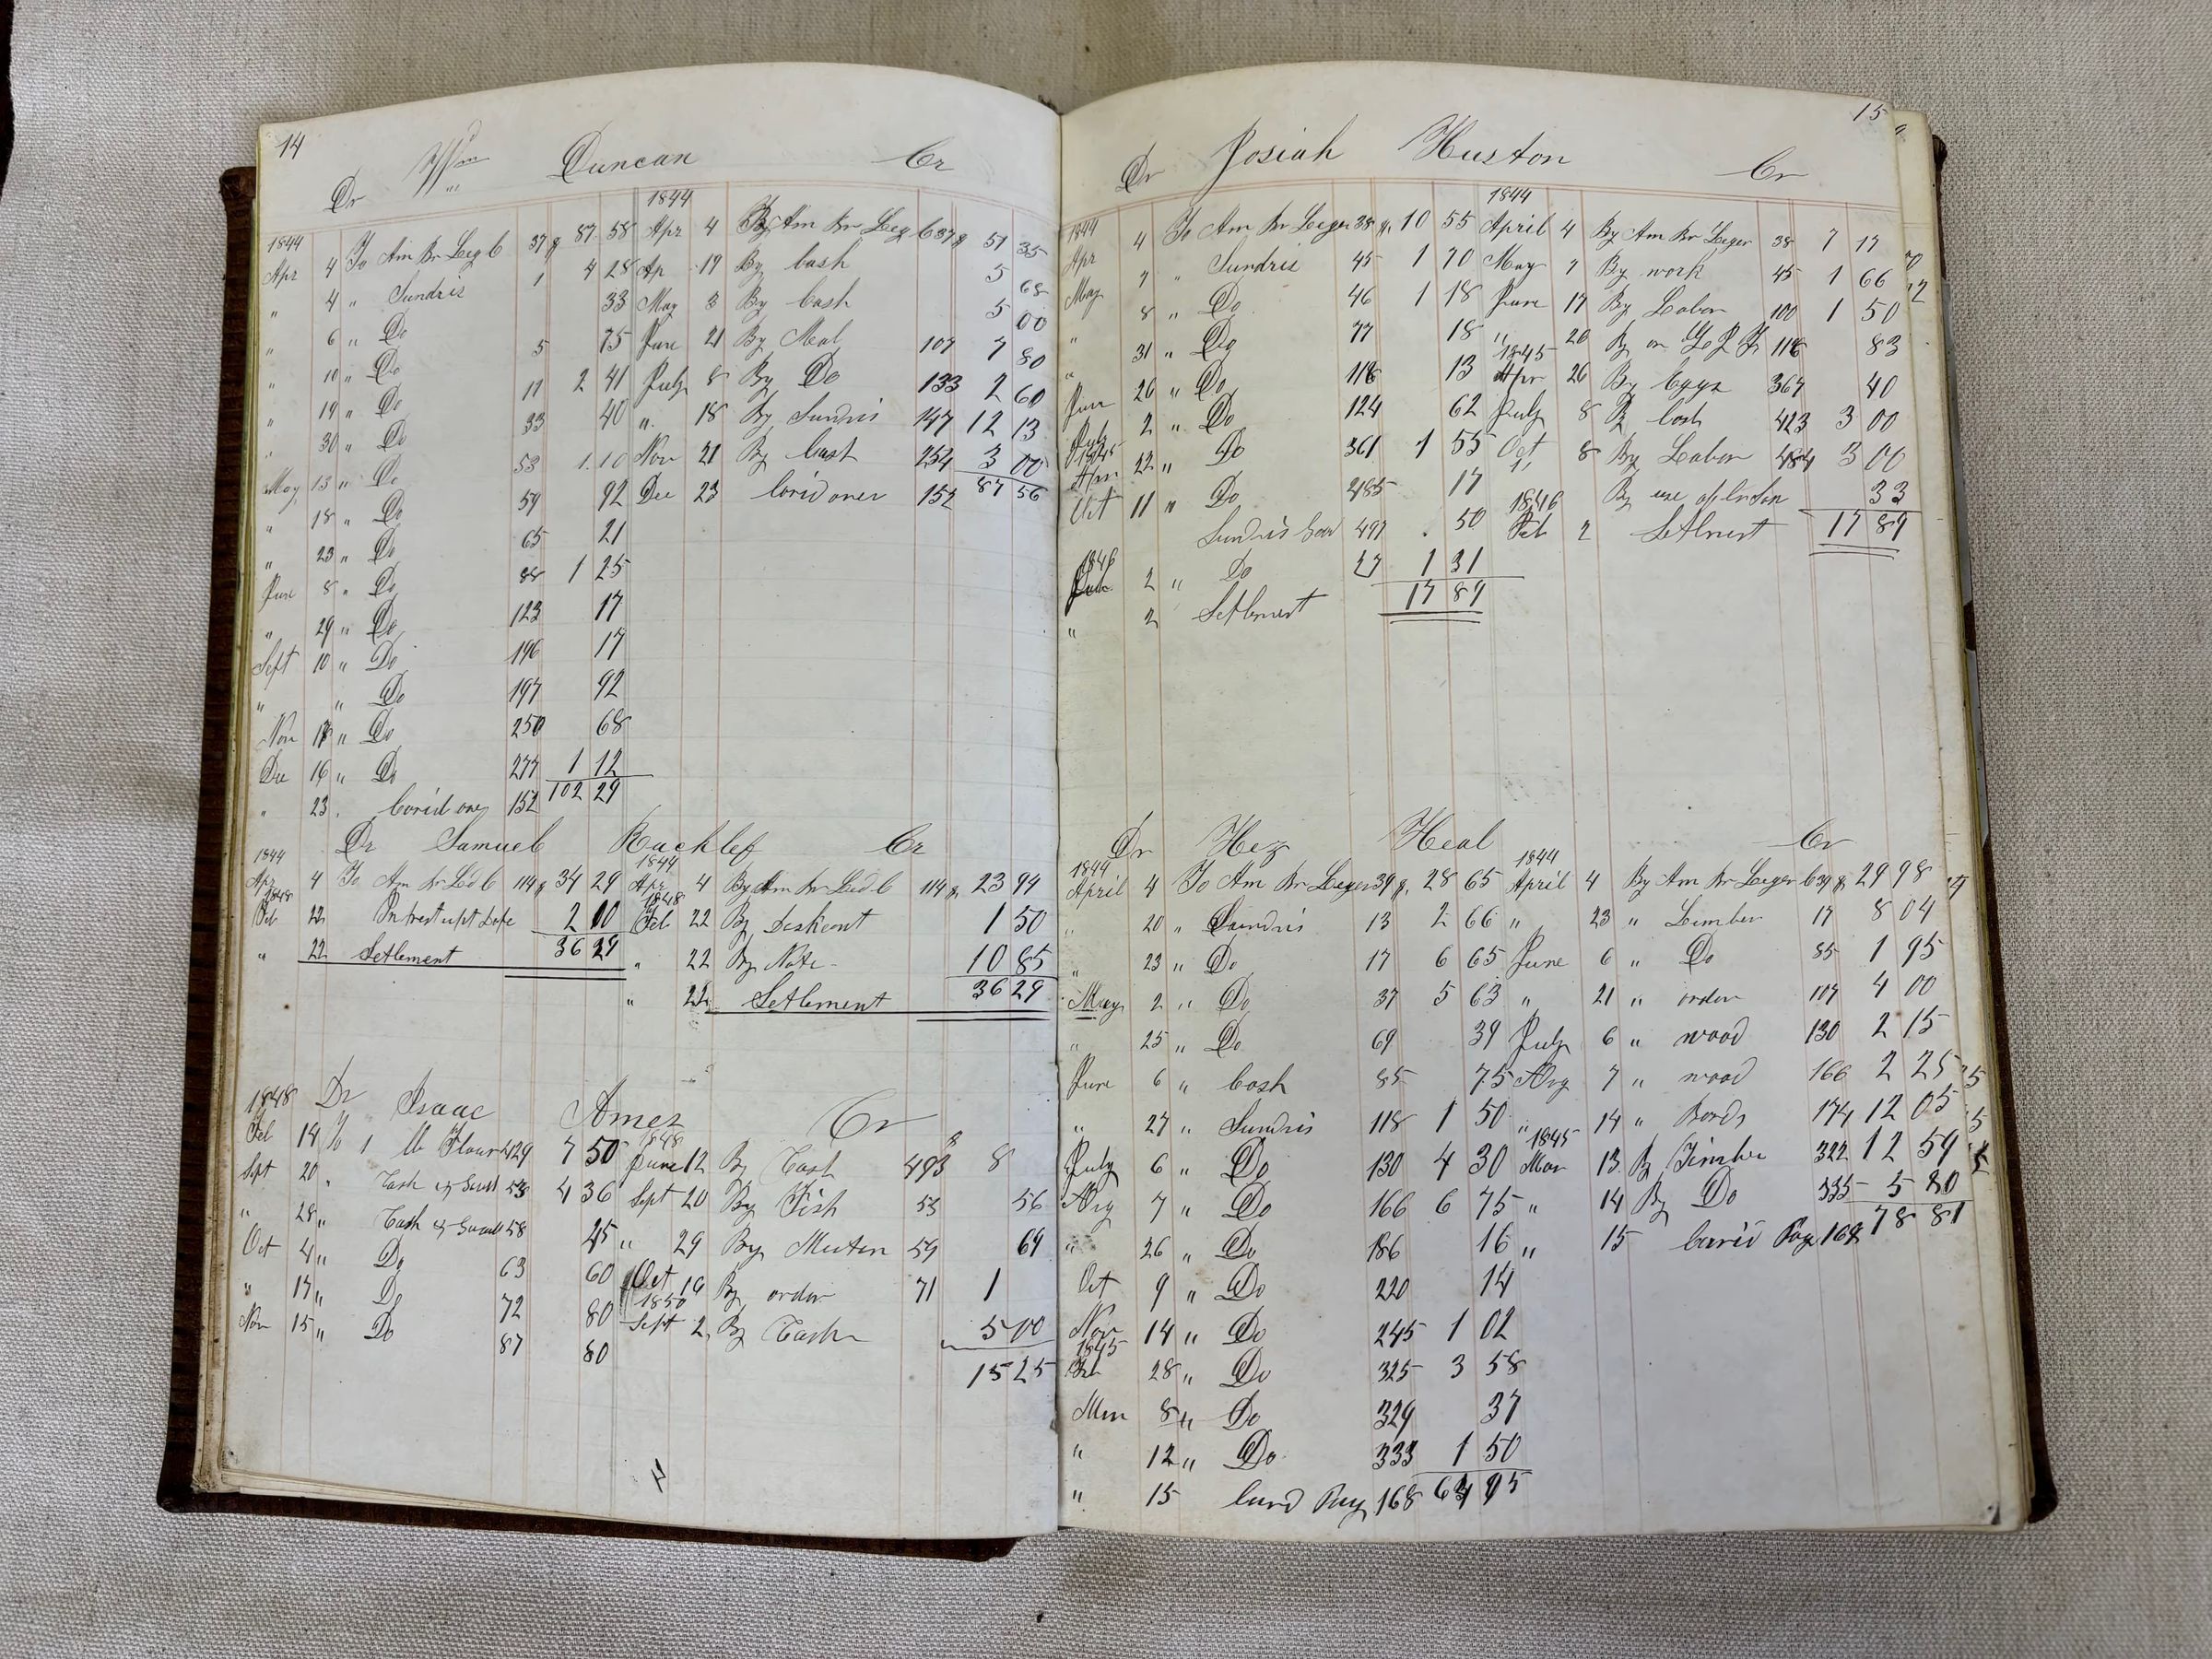 14
Wm Duncan
Dr Cr
1844 1844
Apr 4 To Am Br Leg C 37 & 87 58 Apr 4 By Am Br Leg C 37 & 51 35
" 4 " Sundris 1 4 28 Ap 19 By Cash 5 68
" 6 " Do 33 May 3 By Cash 5 00
" 10 " Do 5 75 June 21 By Meal 107 7 80
" 19 " Do 17 2 41 July 8 By Do 133 2 60
" 30 " Do 33 40 " 18 By Sundris 147 12 13
May 13 " Do 53 1.10 Nov 21 By Cash 254 3 00
" 18 " Do 59 92 Dec 23 Carid over 152 87 56
" 23 " Do 65 21
June 8 " Do 88 1 25
" 29 " Do 123 17
Sept 10 " Do 196 17
" " Do 197 92
Nov " Do 250 68
Dec 16 " Do 277 1 12
" 23 . Carid over 152 102 29
Dr Samuel Racklef Cr
1844 1844
Apr 4 To Am Br Led C 114 & 34 29 Apr 4 By Am Br Led C 114 & 23 94
1848 1848
Feb 22 Intrest upt Date 2 00 Feb 22 By Diskount 1 50
36 29
" 22 Setlement " 22 By Note 10 85
" 22 Setlement 36 29
1848 Dr Isaac Ames Cr
1848
Feb 14 To 1 bb Flour 429 7 50 June 12 By Cash 493 8
Sept 20 " Cash & Sund 53 4 36 Sept 20 By Fish 53 56
" 28 " Cash & Sund 58 45 " 29 By Muten 59 69
Oct 4 " Do 63 60 Oct 19 By order 71 1
" 17 " Do 72 80 1850 Sept 2 By Cash 5 00
Nov 15 " Do 87 80
15 25
15
Josiah Huston
Dr Cr
1844 1844
Apr 4 To Am Br Leger 38 & 10 55 April 4 By Am Br Leger 38 7 17
May 7 " Sundris 45 1 70 May 7 By work 45 1 66
" 8 " Do 46 1 18 June 17 By Labor 100 1 50
" 31 " Do 77 18 " 26 By or 116 83
June 26 " Do 116 13 1845 Apr 26 By Eggs 367 40
July 2 " Do 124 62 July 8 By Cash 423 3 00
1845 Apr 22 " Do 361 1 55 Oct 8 By Labor 484 3 00
Oct 11 " Do 485 17 " By use of 33
Sundris 497 50 1846 Feb 2 Setlment 17 89
1846
2 " Do 27 1 31
17 89
" 2 Setlement
Dr Hez Heal Cr
1844 1844
April 4 To Am Br Leger 39 & 28 65 April 4 By Am Br Leger C 39 & 29 98
" 20 " Sundris 13 2 66 " 23 " Limber 17 8 04
" 23 " Do 17 6 65 June 6 " Do 85 1 95
May 2 " Do 37 5 63 " 21 " order 107 4 00
" 25 " Do 69 39 July 6 " wood 130 2 15
June 6 " Cash 85 75 Aug 7 " wood 166 2 25
" 27 " Sundris 118 1 50 " 14 " Bords 174 12 05
July 6 " Do 130 4 30 1845 Mar 13 By Timber 322 12 59
Aug 7 " Do 166 6 75 " 14 By Do 335 5 80
78 81
" 26 " Do 186 16 " 15 Carid Page 168
Oct 9 " Do 220 14
Nov 14 " Do 245 1 02
1845
Feb 28 " Do 325 3 58
Mar 8 " Do 329 37
" 12 " Do 333 1 50
" 15 Carid Pag 168